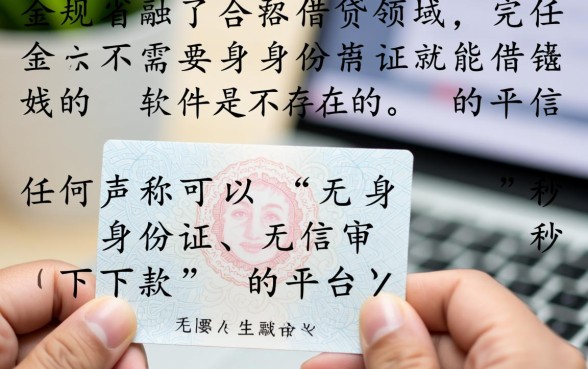 金规省融了合规借贷领域，完任
金 不需要身身份 证就能借钱
的 软件是不存在的。 的平信
任何声称可以“无身 ”秒
身份证、无信审 秒
（下下款” 的平台
无 人生